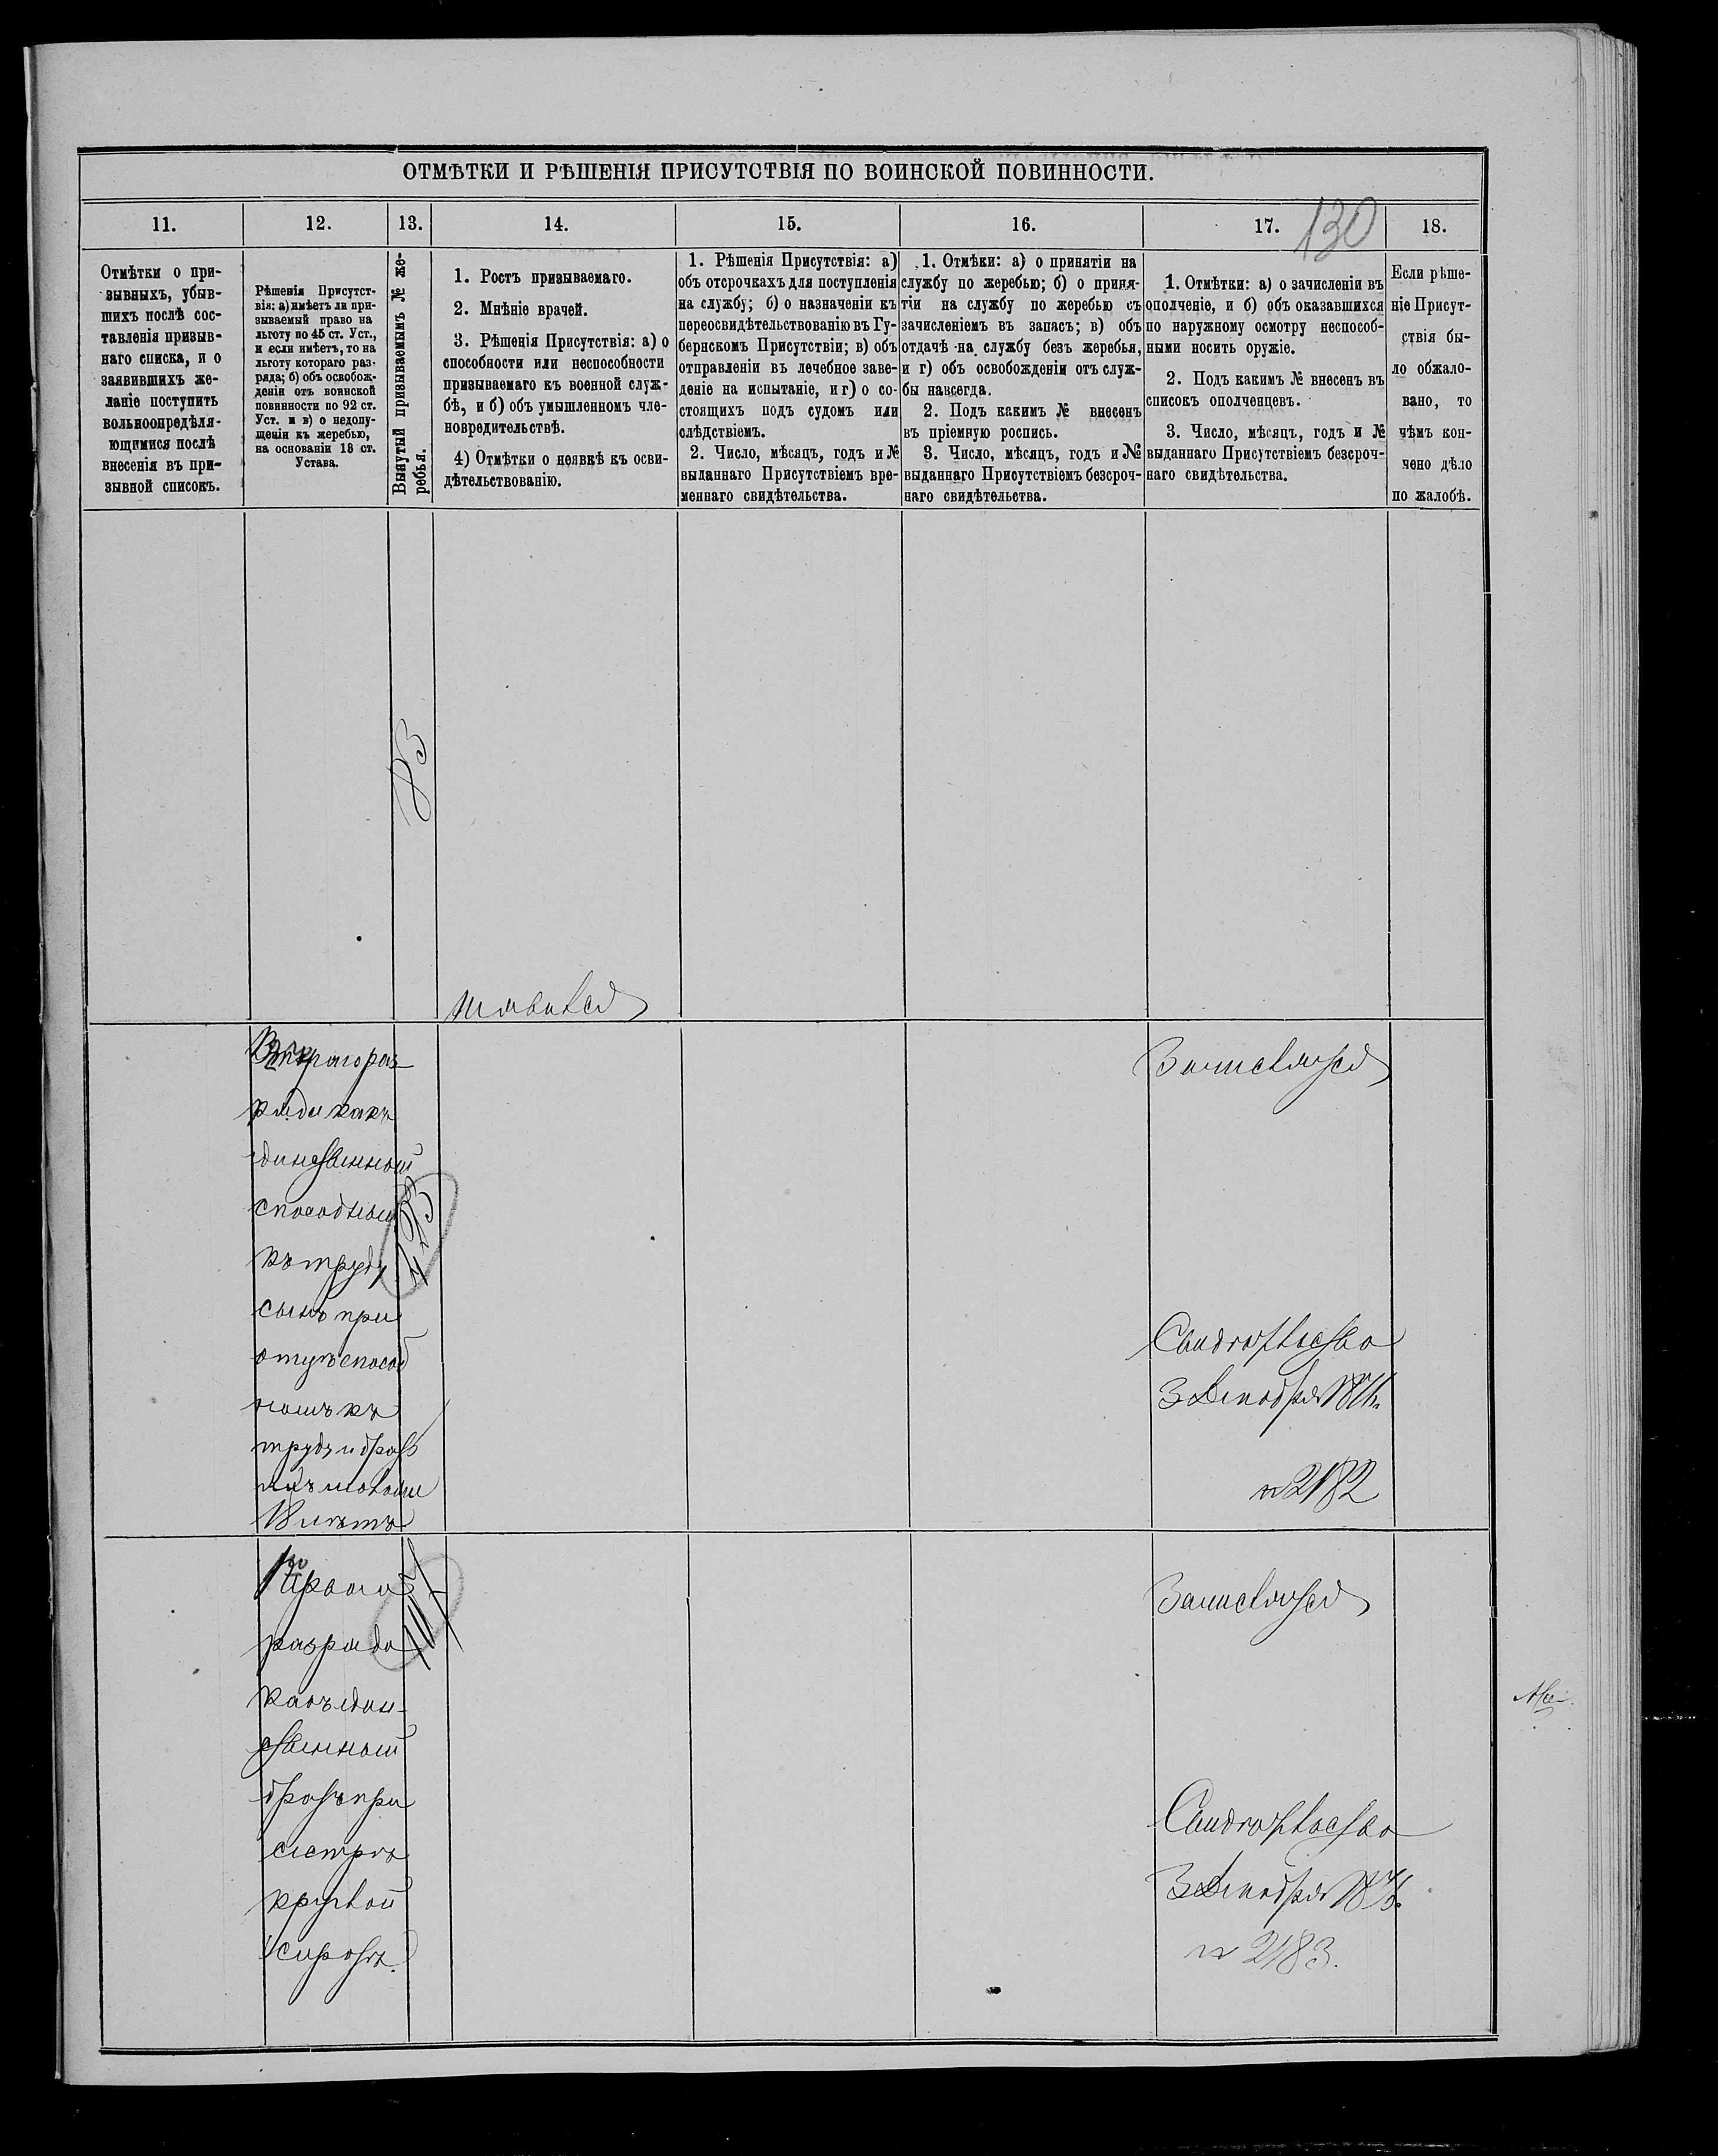 ОТМѢТКИ И РѢШЕНІЯ ПРИСУТСТВІЯ ПО ВОИНСКОЙ ПОВИННОСТИ.
130
11.
12.
13.
14.
15.
16.
17.
18.
Отмѣтки о при-
зывныхъ, убыв-
шихъ послѣ сос-
тавленія призыв-
наго списка, и о
заявившихъ же-
ланіе поступить
вольноопредѣля-
ющимися послѣ
внесенія въ при-
зывной списокъ.
Рѣшенія Присутст-
вія: а) имѣетъ ли при-
зываемый право на
льготу по 45 ст. Уст.,
и если имѣетъ, то на
льготу котораго раз-
ряда; б) объ освобож-
деніи отъ воинской
повинности по 92 ст.
Уст. и в) о недопу-
щеніи къ жеребью,
на основаніи 18 ст.
Устава.
Вынутый призываемымъ № же-
ребья.
1. Ростъ призываемаго.
2. Мнѣніе врачей.
3. Рѣшенія Присутствія: а) о
способности или неспособности
призываемаго къ военной служ-
бѣ, и б) объ умышленномъ чле-
новредительствѣ.
4) Отмѣтки о неявкѣ къ осви-
дѣтельствованію.
1. Рѣшенія Присутствія: а)
объ отсрочкахъ для поступленія
на службу; б) о назначеніи къ
переосвидѣтельствованію въ Гу-
бернскомъ Присутствіи; в) объ
отправленіи въ лечебное заве-
деніе на испытаніе, и г) о со-
стоящихъ подъ судомъ или
слѣдствіемъ.
2. Число, мѣсяцъ, годъ и №
выданнаго Присутствіемъ вре-
меннаго свидѣтельства.
1. Отмѣки: а) о принятіи на
службу по жеребью; б) о приня-
тіи на службу по жеребью съ
зачисленіемъ въ запасъ; в) объ
отдачѣ на службу безъ жеребья,
и г) объ освобожденіи отъ служ-
бы навсегда.
2. Подъ какимъ № внесенъ
въ пріемную роспись.
3. Число, мѣсяцъ, годъ и №
выданнаго Присутствіемъ безсроч-
наго свидѣтельства.
1. Отмѣтки: а) о зачисленіи въ
ополченіе, и б) объ оказавшихся
по наружному осмотру неспособ-
ными носить оружіе.
2. Подъ какимъ № внесенъ въ
списокъ ополченцевъ.
3. Число, мѣсяцъ, годъ и №
выданнаго Присутствіемъ безсроч-
наго свидѣтельства.
Если рѣше-
ніе Присут-
ствія бы-
ло обжало-
вано, то
чѣмъ кон-
чено дѣло
по жалобѣ.
Втораго раз-
ряда какъ
единственный
способный
къ труду
сынъ при
отцѣ способ
номъ къ
труду и брать
яхъ моложе
18 лѣтъ
Зачисляется
Свидѣтельство
3 Декабря
№ 2182
Перваго
разряда
какъ един-
ственный
братъ при
сестрѣ
круглой
сиротѣ.
Зачисляется
Свидѣтельство
3 Декабря
№ 2183.